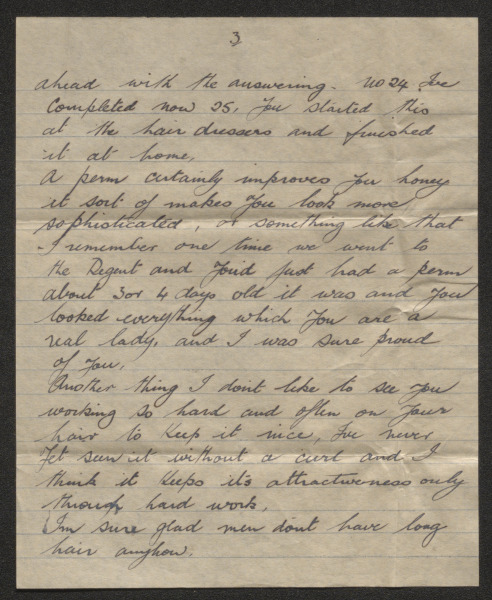 3
ahead with the answering. No 24 I've
Completed now 25, you started this
at the hair dressers and finished
it at home.
A perm certainly improves you honey
it sort of makes you look more
sophisticated, or something like that
I remember one time we went to
the Regent and you'd just had a perm
about 3 or 4 days old it was and you
looked everything which you are a
real lady, and I was sure proud
of you.
Another thing I dont like to see you
working so hard and often on your
hair to keep it nice, I've never
yet seen it without a curl and I
think it keeps it's attractiveness only
through hard work.
I'm sure glad men dont have long
hair anyhow.